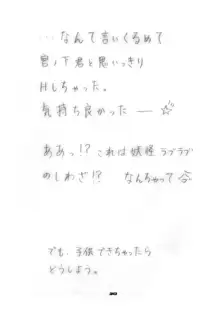 …なんて言いくるめて
宮ノ下君と思いっきり
Hしちゃった。
気持ち良かった ── ☆
ああっ!? これは妖怪ラブラブ
のしわざ!? なんちゃって
でも、子供できちゃったら
どうしよう。